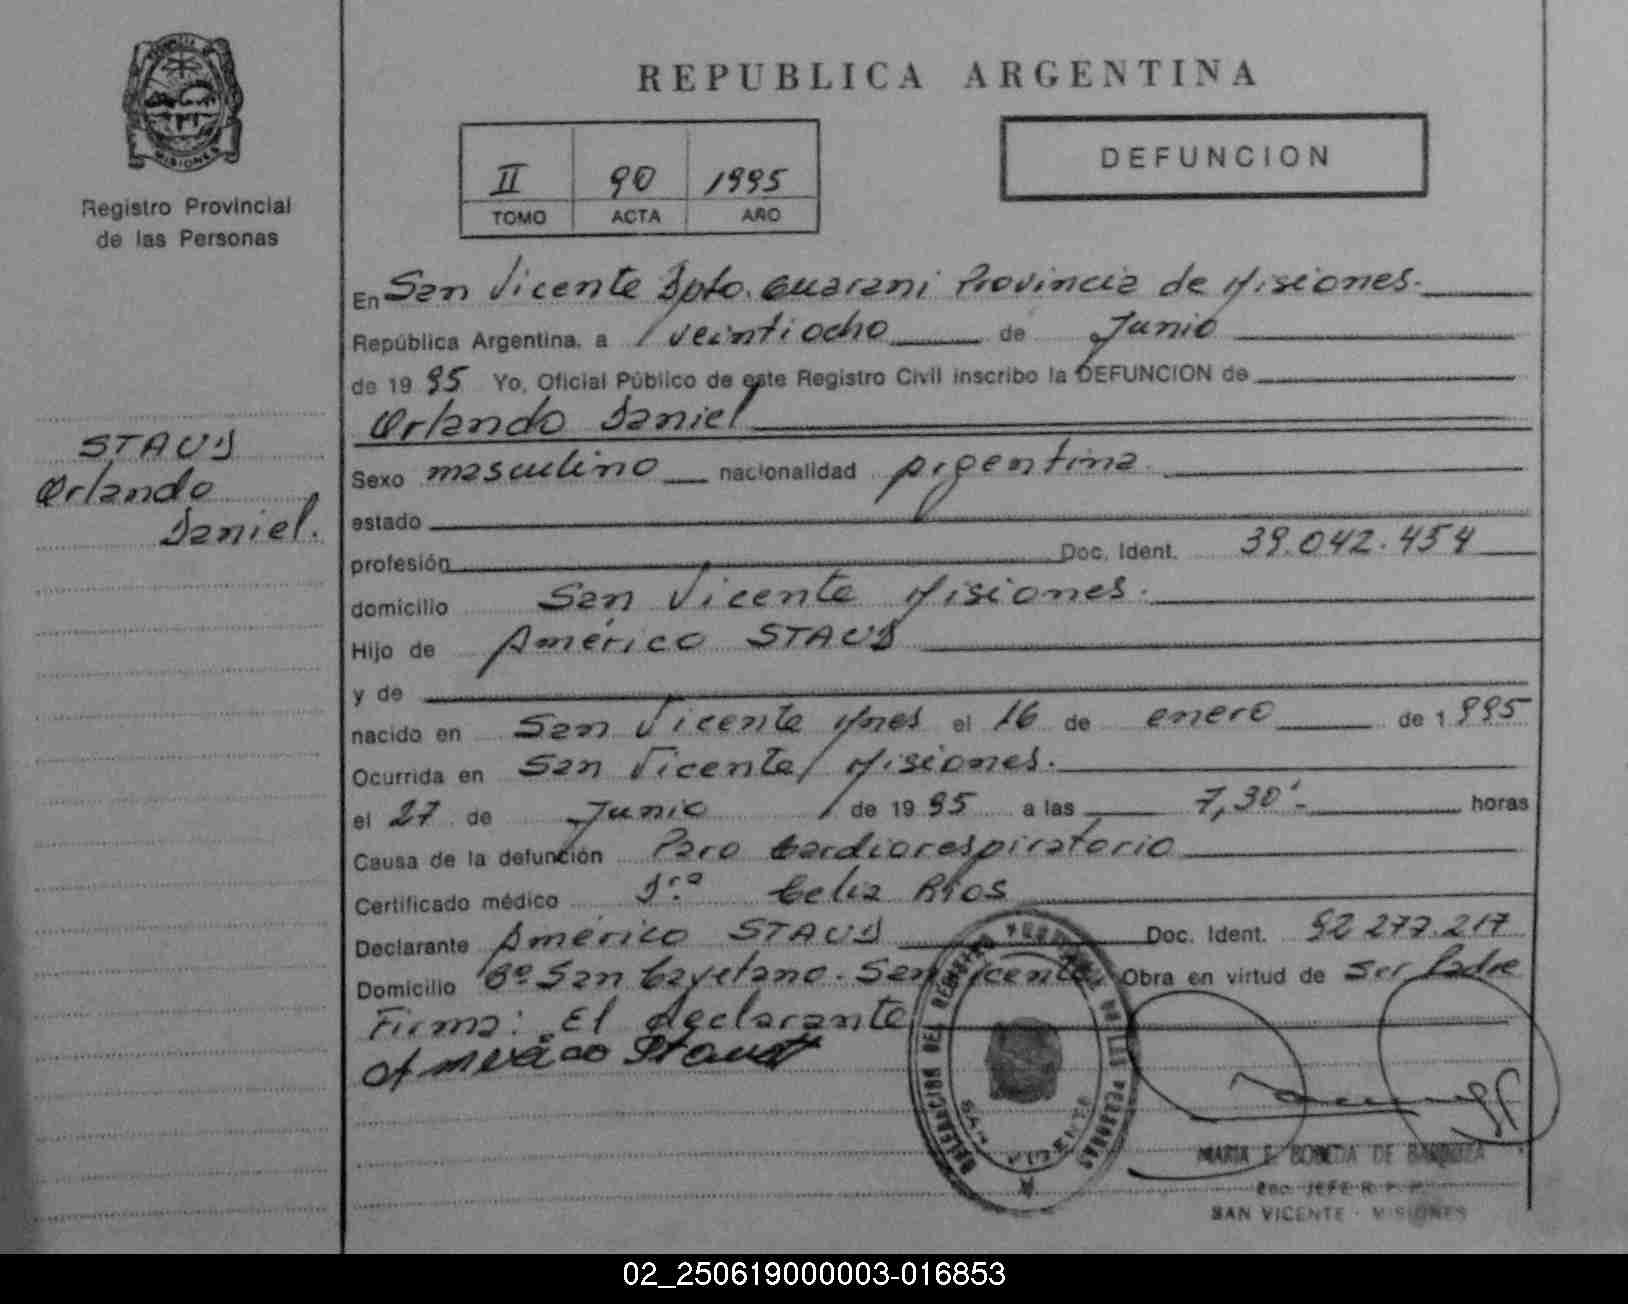 REPUBLICA ARGENTINA
MISIONES
Registro Provincial
de las Personas
II 90 1995
TOMO ACTA AÑO
DEFUNCION
STAUD
Orlando
Daniel.
En San Vicente Dpto. Guarani Provincia de Misiones.
República Argentina, a veintiocho de Junio
de 19 95 Yo, Oficial Público de este Registro Civil inscribo la DEFUNCION de
Orlando Daniel
Sexo masculino nacionalidad argentina.
estado
profesión Doc. Ident. 39.042.454
domicilio San Vicente Misiones.
Hijo de Américo STAUD
y de
nacido en San Vicente Mnes el 16 de enero de 1 995
Ocurrida en San Vicente, Misiones.
el 27 de Junio de 19 95 a las 7,30'- horas
Causa de la defunción Paro Cardiorespiratorio
Certificado médico Dra Celia Ríos
Declarante Américo STAUD Doc. Ident. 92 277.217
Domicilio Bº San Cayetano. San Vicente Obra en virtud de Ser Padre
Firma: El declarante
Americo
DELEGACION DEL REGISTRO PROVINCIAL DE LAS PERSONAS
SAN VICENTE
MARIA E. BOBEDA DE BARBOZA
2do. JEFE R. P. P.
SAN VICENTE - MISIONES
02_250619000003-016853